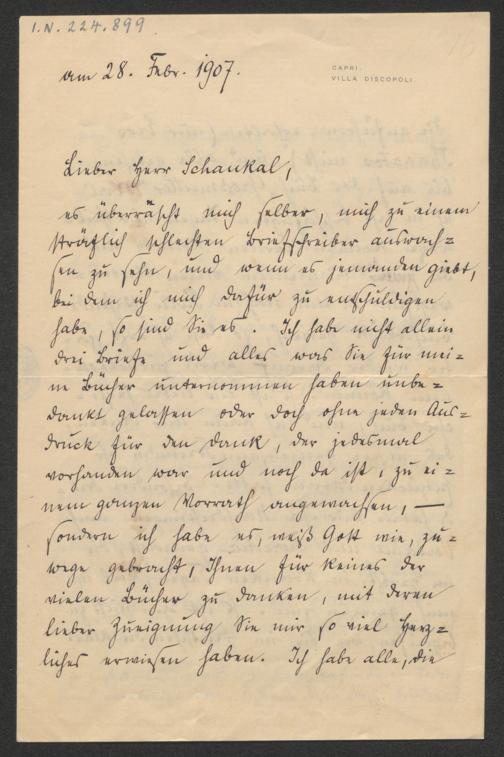 I.N. 224.899
am 28. Febr. 1907.
CAPRI.
VILLA DISCOPOLI.
Lieber Herr Schaukal,
es überrascht mich selber, mich zu einem
sträflich schlechten Briefschreiber auswach=
sen zu sehn, und wenn es jemanden giebt,
bei dem ich mich dafür zu entschuldigen
habe, so sind Sie es. Ich habe nicht allein
drei Briefe und alles was Sie für mei=
ne Bücher unternommen haben unbe=
dankt gelassen oder doch ohne jeden Aus=
druck für den Dank, der jedesmal
vorhanden war und noch da ist, zu ei=
nem ganzen Vorrath angewachsen, —
sondern ich habe es, weiß Gott wie, zu=
wege gebracht, Ihnen für keines der
vielen Bücher zu danken, mit deren
lieber Zueignung Sie mir so viel Herz=
liches erwiesen haben. Ich habe alle, die